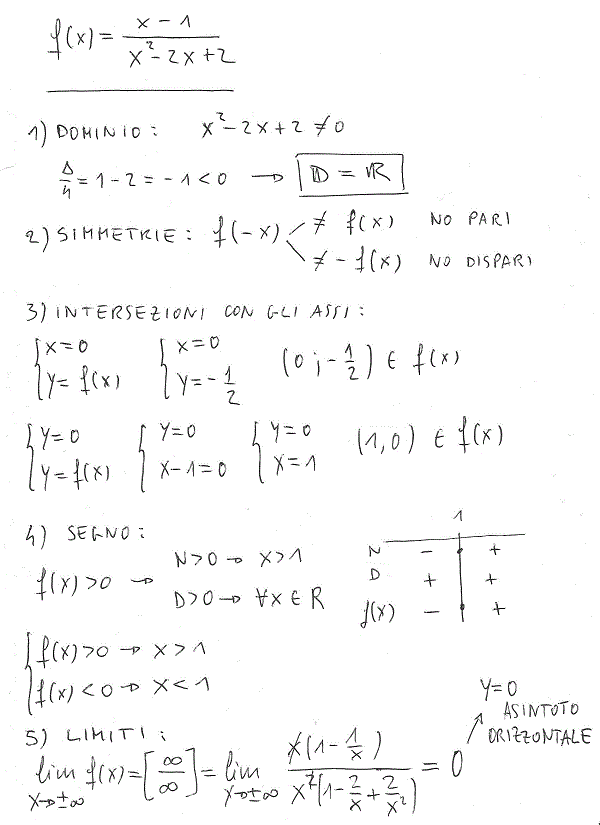 f(x) = (x - 1)/(x² - 2x + 2)
1) DOMINIO: x² - 2x + 2 ≠ 0
Δ/4 = 1 - 2 = -1 < 0 → D = ℝ
2) SIMMETRIE: f(-x) ≠ f(x) NO PARI
≠ - f(x) NO DISPARI
3) INTERSEZIONI CON GLI ASSI:
{x = 0 {x = 0 (0; -1/2) ∈ f(x)
{y = f(x) {y = -1/2
{y = 0 {y = 0 {y = 0 (1, 0) ∈ f(x)
{y = f(x) {x - 1 = 0 {x = 1
4) SEGNO:
f(x) > 0 → N > 0 → x > 1
D > 0 → ∀x ∈ R
1
N - +
D + +
f(x) - +
{f(x) > 0 → x > 1
{f(x) < 0 → x < 1
5) LIMITI:
lim x→±∞ f(x) = [∞/∞] = lim x→±∞ x(1 - 1/x)/(x²(1 - 2/x + 2/x²)) = 0
y = 0
ASINTOTO
ORIZZONTALE